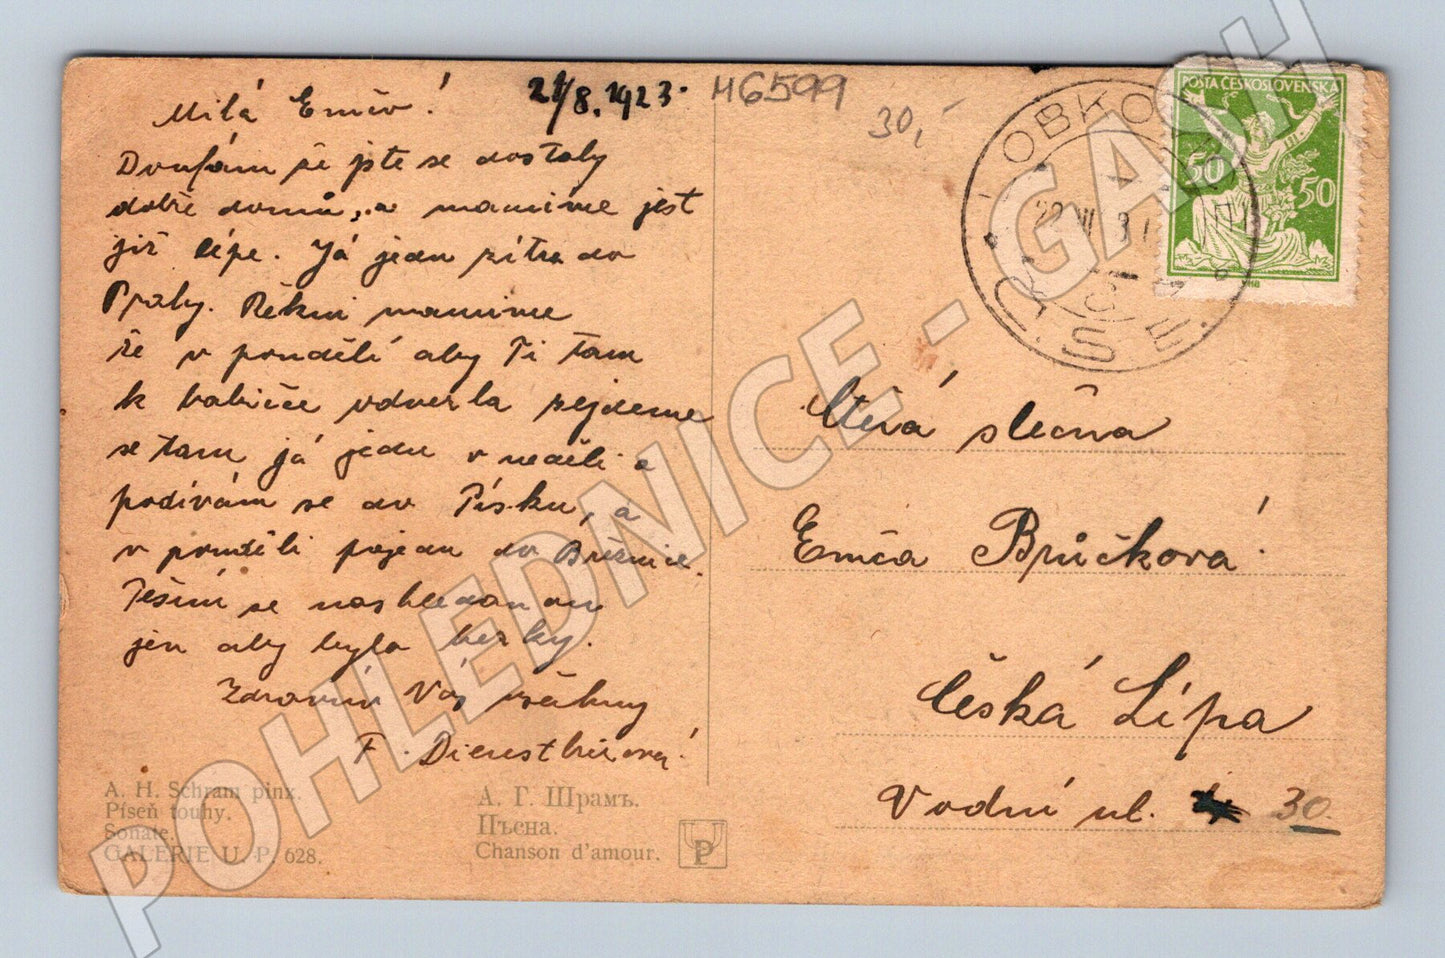 21/8. 1923.
M6599
30,-
Milá Emčo!
Doufám že jste se dostaly
dobře domů, a mamince jest
již lépe. Já jedu zítra do
Prahy. Řekni mamince
že v pondělí aby Ti tam
k babičce odvezla pojedeme
se tam já jedu v neděli a
podívám se do Písku, a
v pondělí pojedu do Březnice.
Těším se na shledanou
jen aby bylo hezky.
Zdravím Vás všechny
F. Dienstbierová!
POŠTA ČESKOSLOVENSKÁ
50 50
LOBKO
Č.S.
Ctěná slečna
Emča Brůčková!
Česká Lípa
Vodní ul. 30.
A. H. Schram pinx.
Píseň touhy.
Sonate.
GALERIE U. P. 628.
А. Г. Шрамъ.
Пѣсна.
Chanson d'amour.
UP
POHLEDNICE - GASH